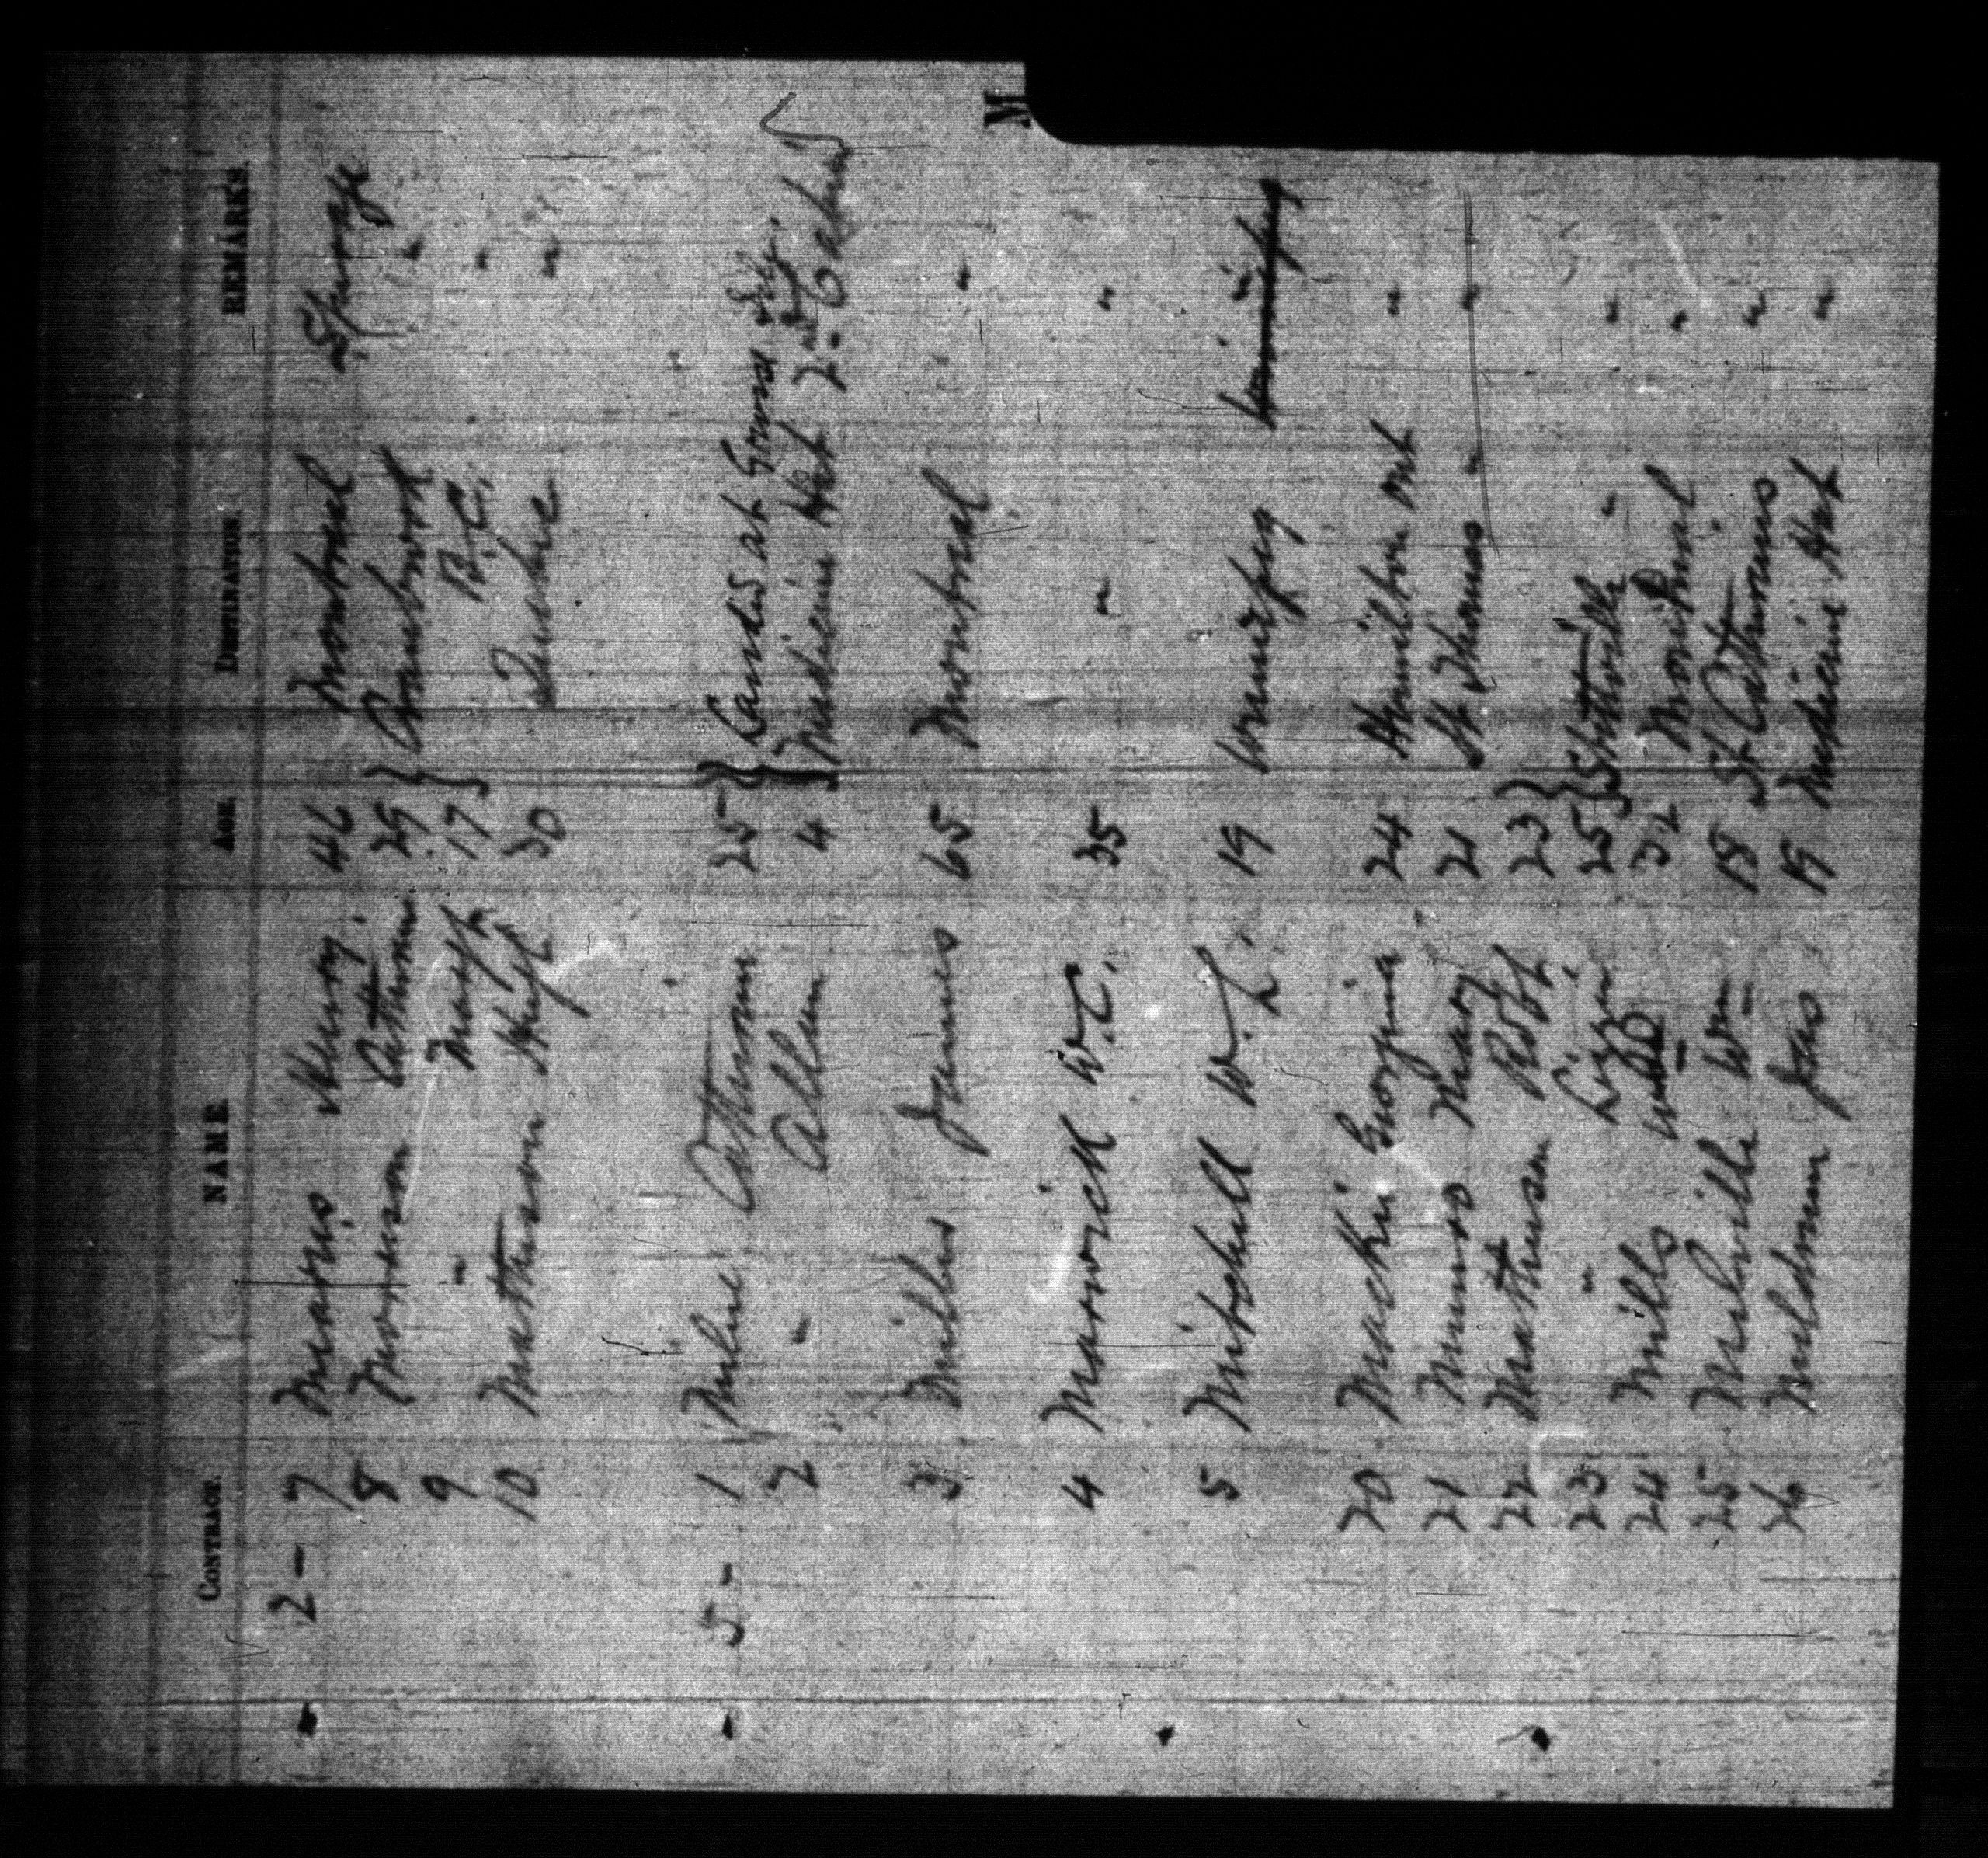 M
CONTRACT. NAME. AGE. DESTINATION. REMARKS.
2 - 7 Mearns Henry. 46 Montreal Steerage
8 Morrison Cathrine 29 } Cranbrook "
9 " 17 } B.C. "
10 Mathieson 30 Quebec "
5 - 1 Milne Cathrine 25 } Landed at Grosse Isle
2 " Allen 4 } Medicine Hat 2nd Cabin
3 Miller James 65 Montreal "
4 Marwick W.C. 35 " "
5 Mitchell W. L. 19 Winnipeg "
20 Mackie Georgina 24 Hamilton Ont "
21 Munro Mary 21 St Thomas " "
22 Matheson Robt. 23 }
23 " Lizzie 25 } " "
24 Mills 32 Montreal "
25 Melville Wm 18 St Cathrines "
26 Meldrum Jas 19 Medicine Hat "